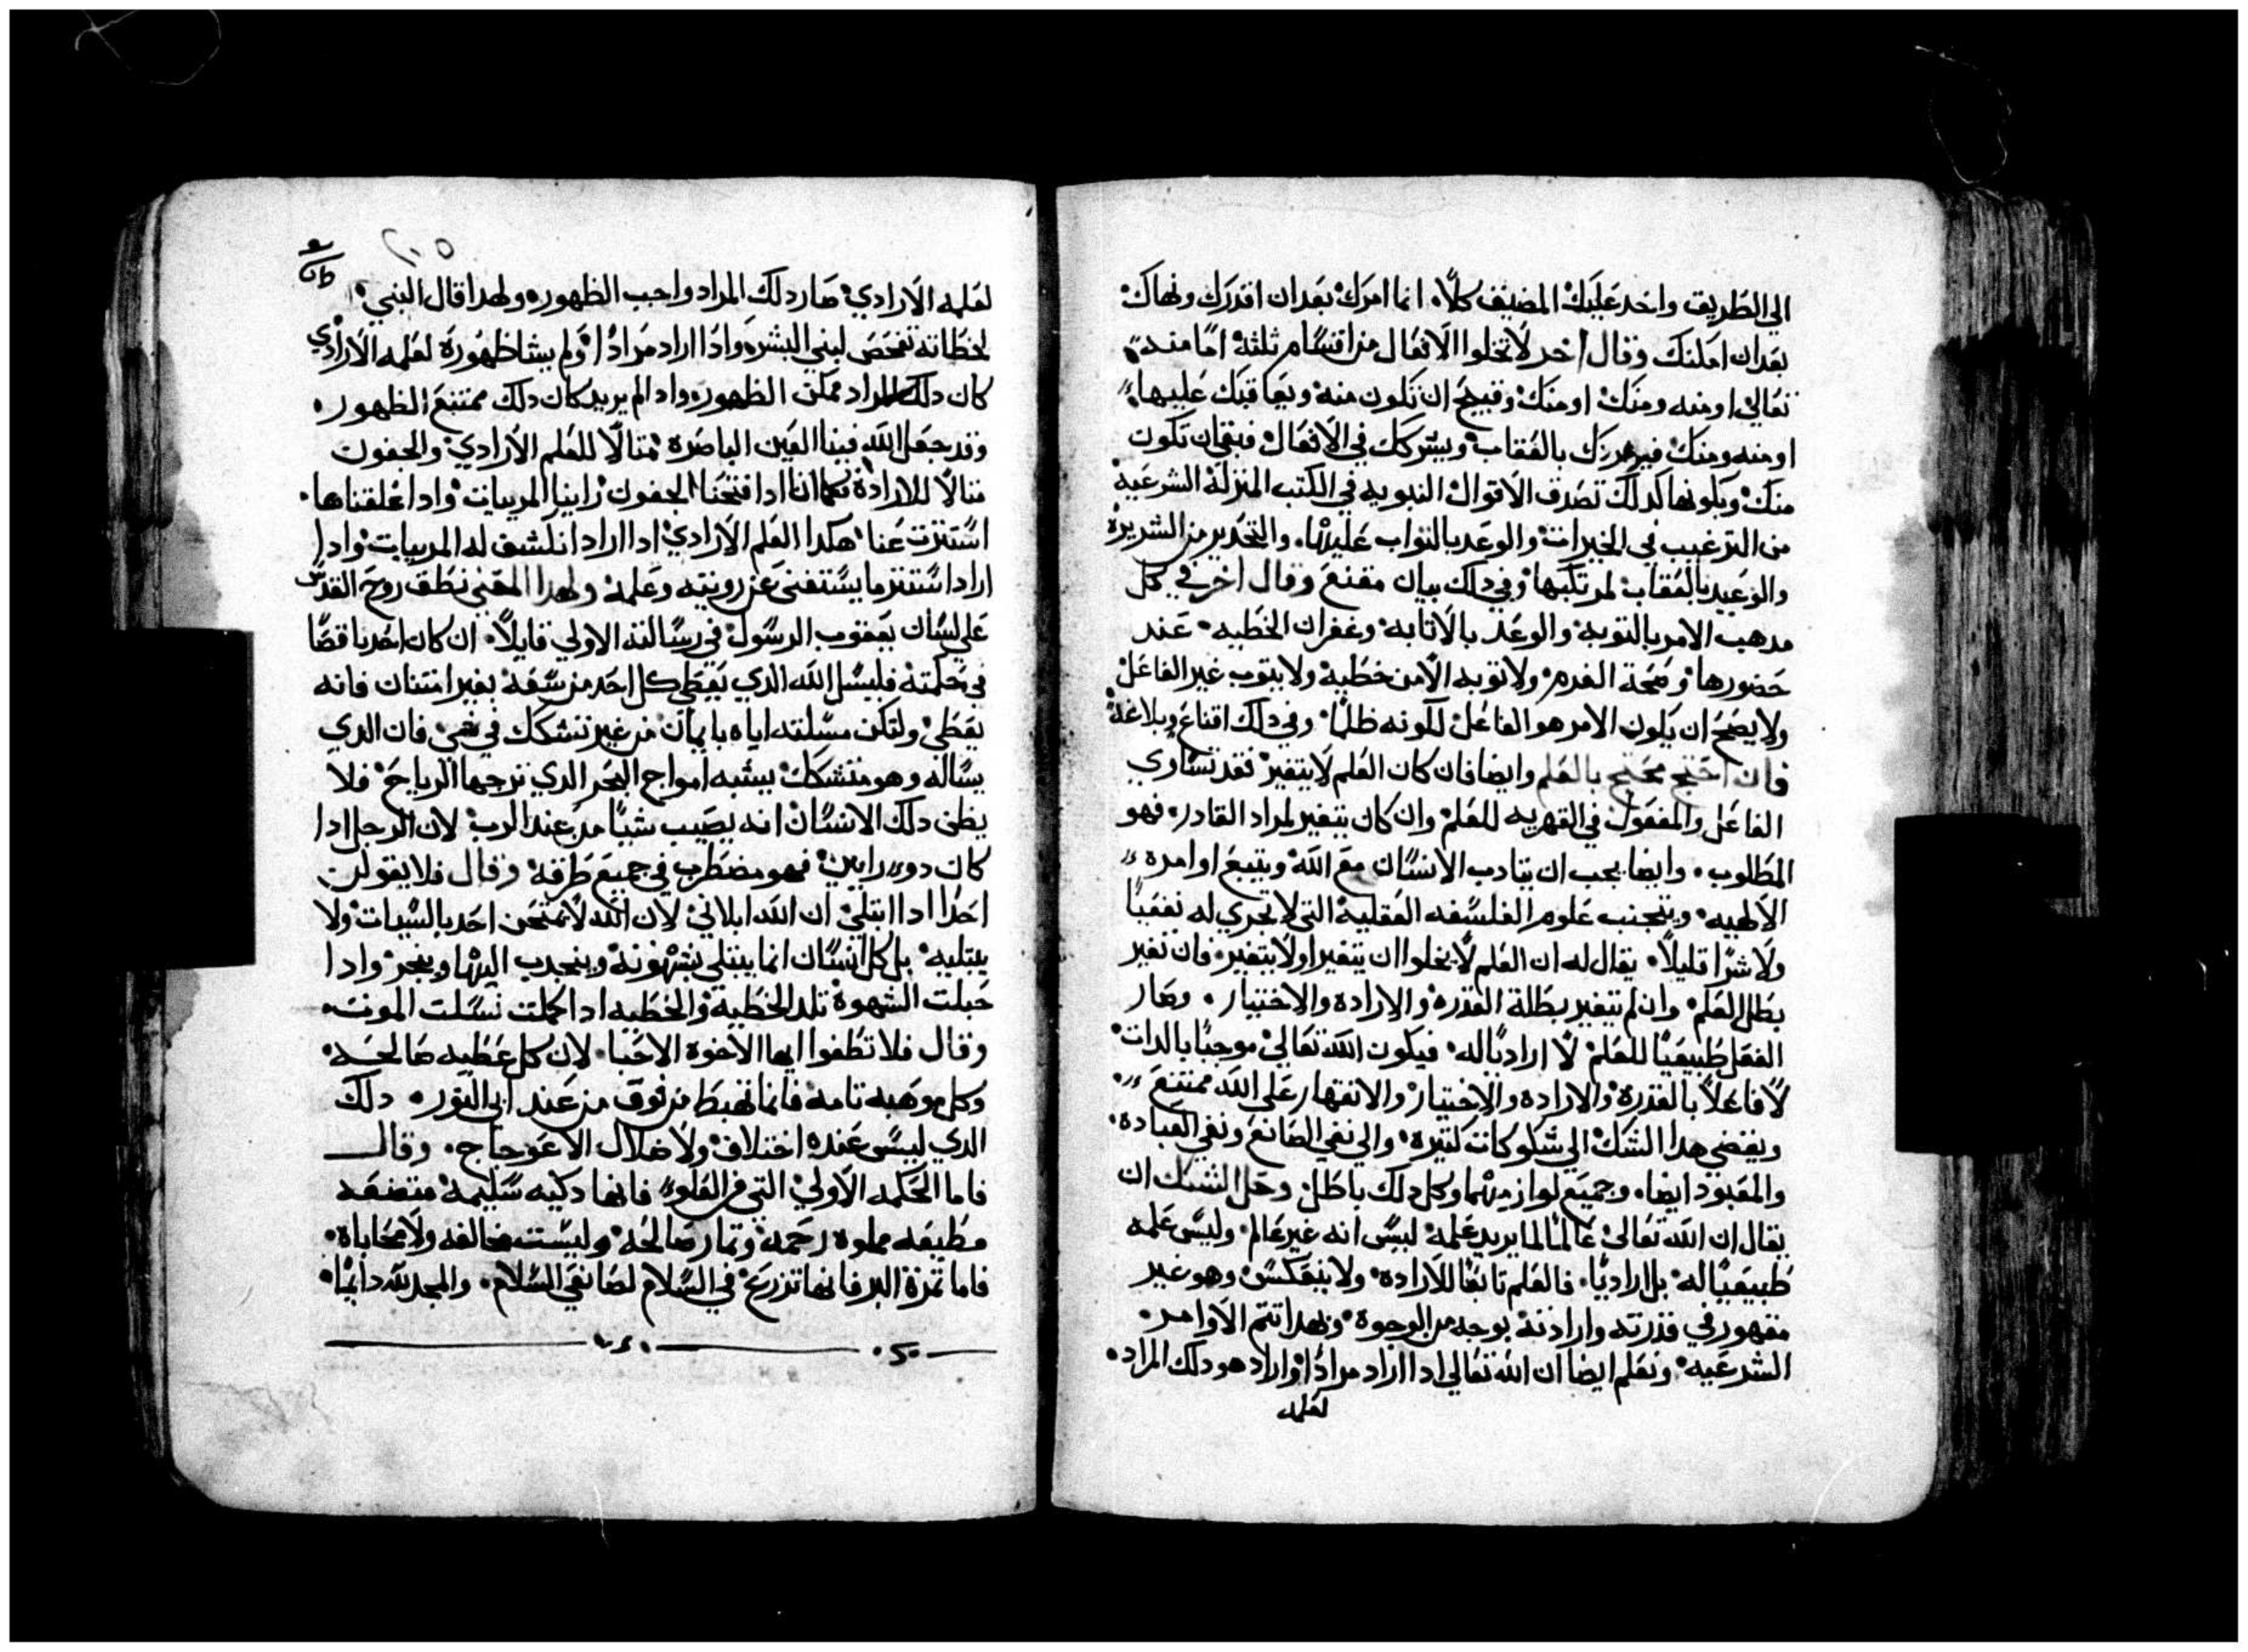 الي الطريق واخد عليك المضيف كلاً انما امرك بعدان اقدرك ونهاك
بعدان املنك وقال اخر لا تخلوا الافعال من اقسام ثلثة اما منه
تعالي او منه ومنك او منك وقبيح ان تكون منه ويعاقبك عليها
او منه ومنك فيفرزك بالعقاب ويشركك في الافعال فبقي ان تكون
منك وبكونها كدلك تصدق الاقوال النبويه في الكتب المنزلة الشرعية
من الترغيب في الخيرات والوعد بالتواب عليها والتحدير من الشريرة
والوعيد بالعقاب لمرتكبها وفي دلك بيان مقنع وقال اخر في كل
مدهب الامر بالتوبة والوعد بالاتابه وغفران الخطيه عند
حضورها وصحة الندم ولا توبه الا من خطية ولا يتوب غير الفاعل
ولا يصح ان يكون الامر هو الفاعل لكونه ظلماً وفي دلك اقناع وبلاغة
فان احتج محتج بالعلم وايضا فان كان العلم لا يتغير فقد تساوي
الفاعل والمفعول في القهريه للعلم وان كان يتغير لمراد القادر فهو
المطلوب وايضا يجب ان يتادب الانسان مع الله ويتبع اوامره
الالهيه ويتجنب علوم الفلسفه العقلية التي لا تجري له نفعياً
ولا شراً قليلاً يقال له ان العلم لا يخلوا ان يتغير او لا يتغير فان تغير
بطل العلم وان لم يتغير بطلة القدره والاراده والاختيار وصار
الفعل طبيعياً للعلم لا ارادياً له فيكون الله تعالي موجباً بالدات
لا فاعلاً بالقدرة والاراده والاختيار والانقهار علي الله ممتنع
ويفضي هدا الشك الي شكوكات كتيره والي نفي الصانع ونفي العباده
والمعبود ايضا وجميع لوازمهما وكل دلك باطل وحل الشك ان
يقال ان الله تعالي عالماً لما يريد علمه ليس انه غير عالم وليس علمه
طبيعياً له بل ارادياً فالعلم تابعاً للاراده ولا ينعكس وهو غير
مقهور في قدرته وارادته بوجه من الوجوه وبهدا تتم الاوامر
الشرعيه ونعلم ايضا ان الله تعالي ادا اراد مراداً واراد هو دلك المراد
لعلمه
لعلمه الارادي صار دلك المراد واجب الظهور ولهدا قال النبي
لحظاته تفحص لبني البشر وادا اراد مراداً ولم يشا ظهوره لعلمه الارادي
كان دلك المراد ممكن الظهور وادا لم يريد كان دلك ممتنع الظهور
وقد جعل الله فينا العين الباصره متالاً للعلم الارادي والجفون
متالاً للارادة فكما اننا ادا فتحنا الجفون راينا المريبات وادا غلقناها
استترت عنا هكدا العلم الارادي ادا اراد انكشف له المريبات وادا
اراد استتر ما يستغني عن رويته وعلمه ولهدا المعني نطق روح القدس
علي لسان يعقوب الرسول في رسالته الاولي قايلاً ان كان احد ناقصاً
في حكمته فليسل الله الدي يعطي كل احد من سعة بغير امتنان فانه
يعطي ولتكن مسلته اياه بايمان من غير تشكك في شي فان الدي
يساله وهو متشكك يشبه امواج البحر الدي تزجها الرياح فلا
يظن دلك الانسان انه يصيب شياً من عند الرب لان الرجل ادا
كان دو رايين فهو مضطرب في جميع طرقه وقال فلا يقولن
احداً ادا ابتلي ان الله ابلاني لان الله لا يمتحن احد بالسيات ولا
يبتليه بل كل انسان انما يبتلي بشهوته وينجدب اليها وينجر وادا
حبلت الشهوة تلد الخطية والخطيه ادا كملت نسلت الموت
وقال فلا تطغوا ايها الاخوة الاحبا لان كل عطيه صالحه
وكل موهبه تامه فانما تهبط من فوق من عند ابي النور دلك
الدي ليس عنده اختلاف ولا ضلال الاعوجاج وقال
فاما الحكمه الاولي التي من العلو فانها دكيه سليمة متضعه
مطيعه مملوه رحمه وتمار صالحه وليست مخالفه ولا محاباة
فاما تمرة البر فانها تزرع في السلام لصانعي السلام والمجد لله دايماً